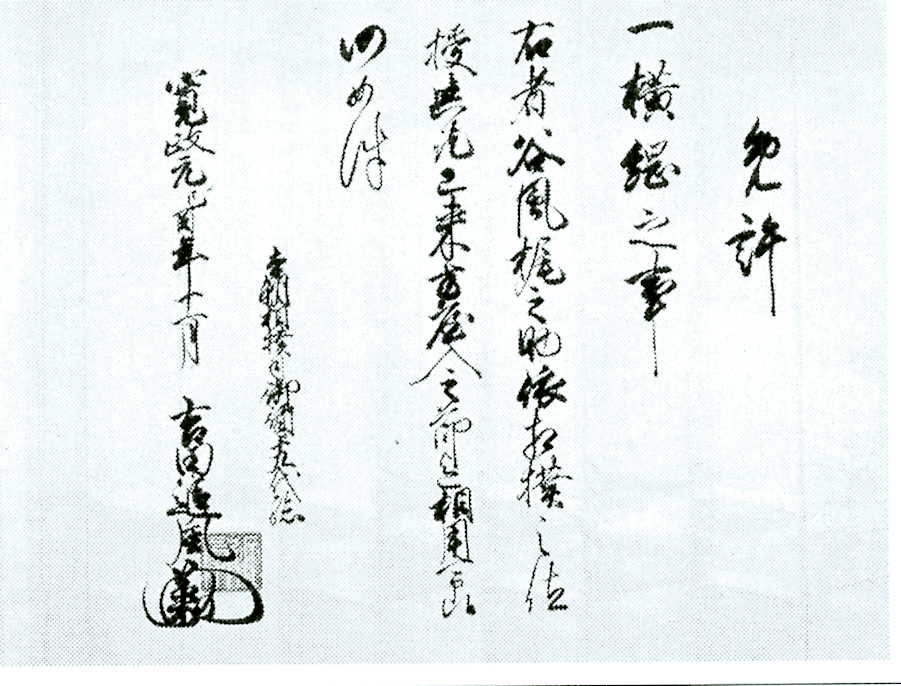 免許
一横綱之事
右者谷風梶之助依相撲之位
授与畢以来方屋入之節迄相用可申候
仍如件
本朝相撲之御行司十九代
寛政元己酉年十一月 吉田追風